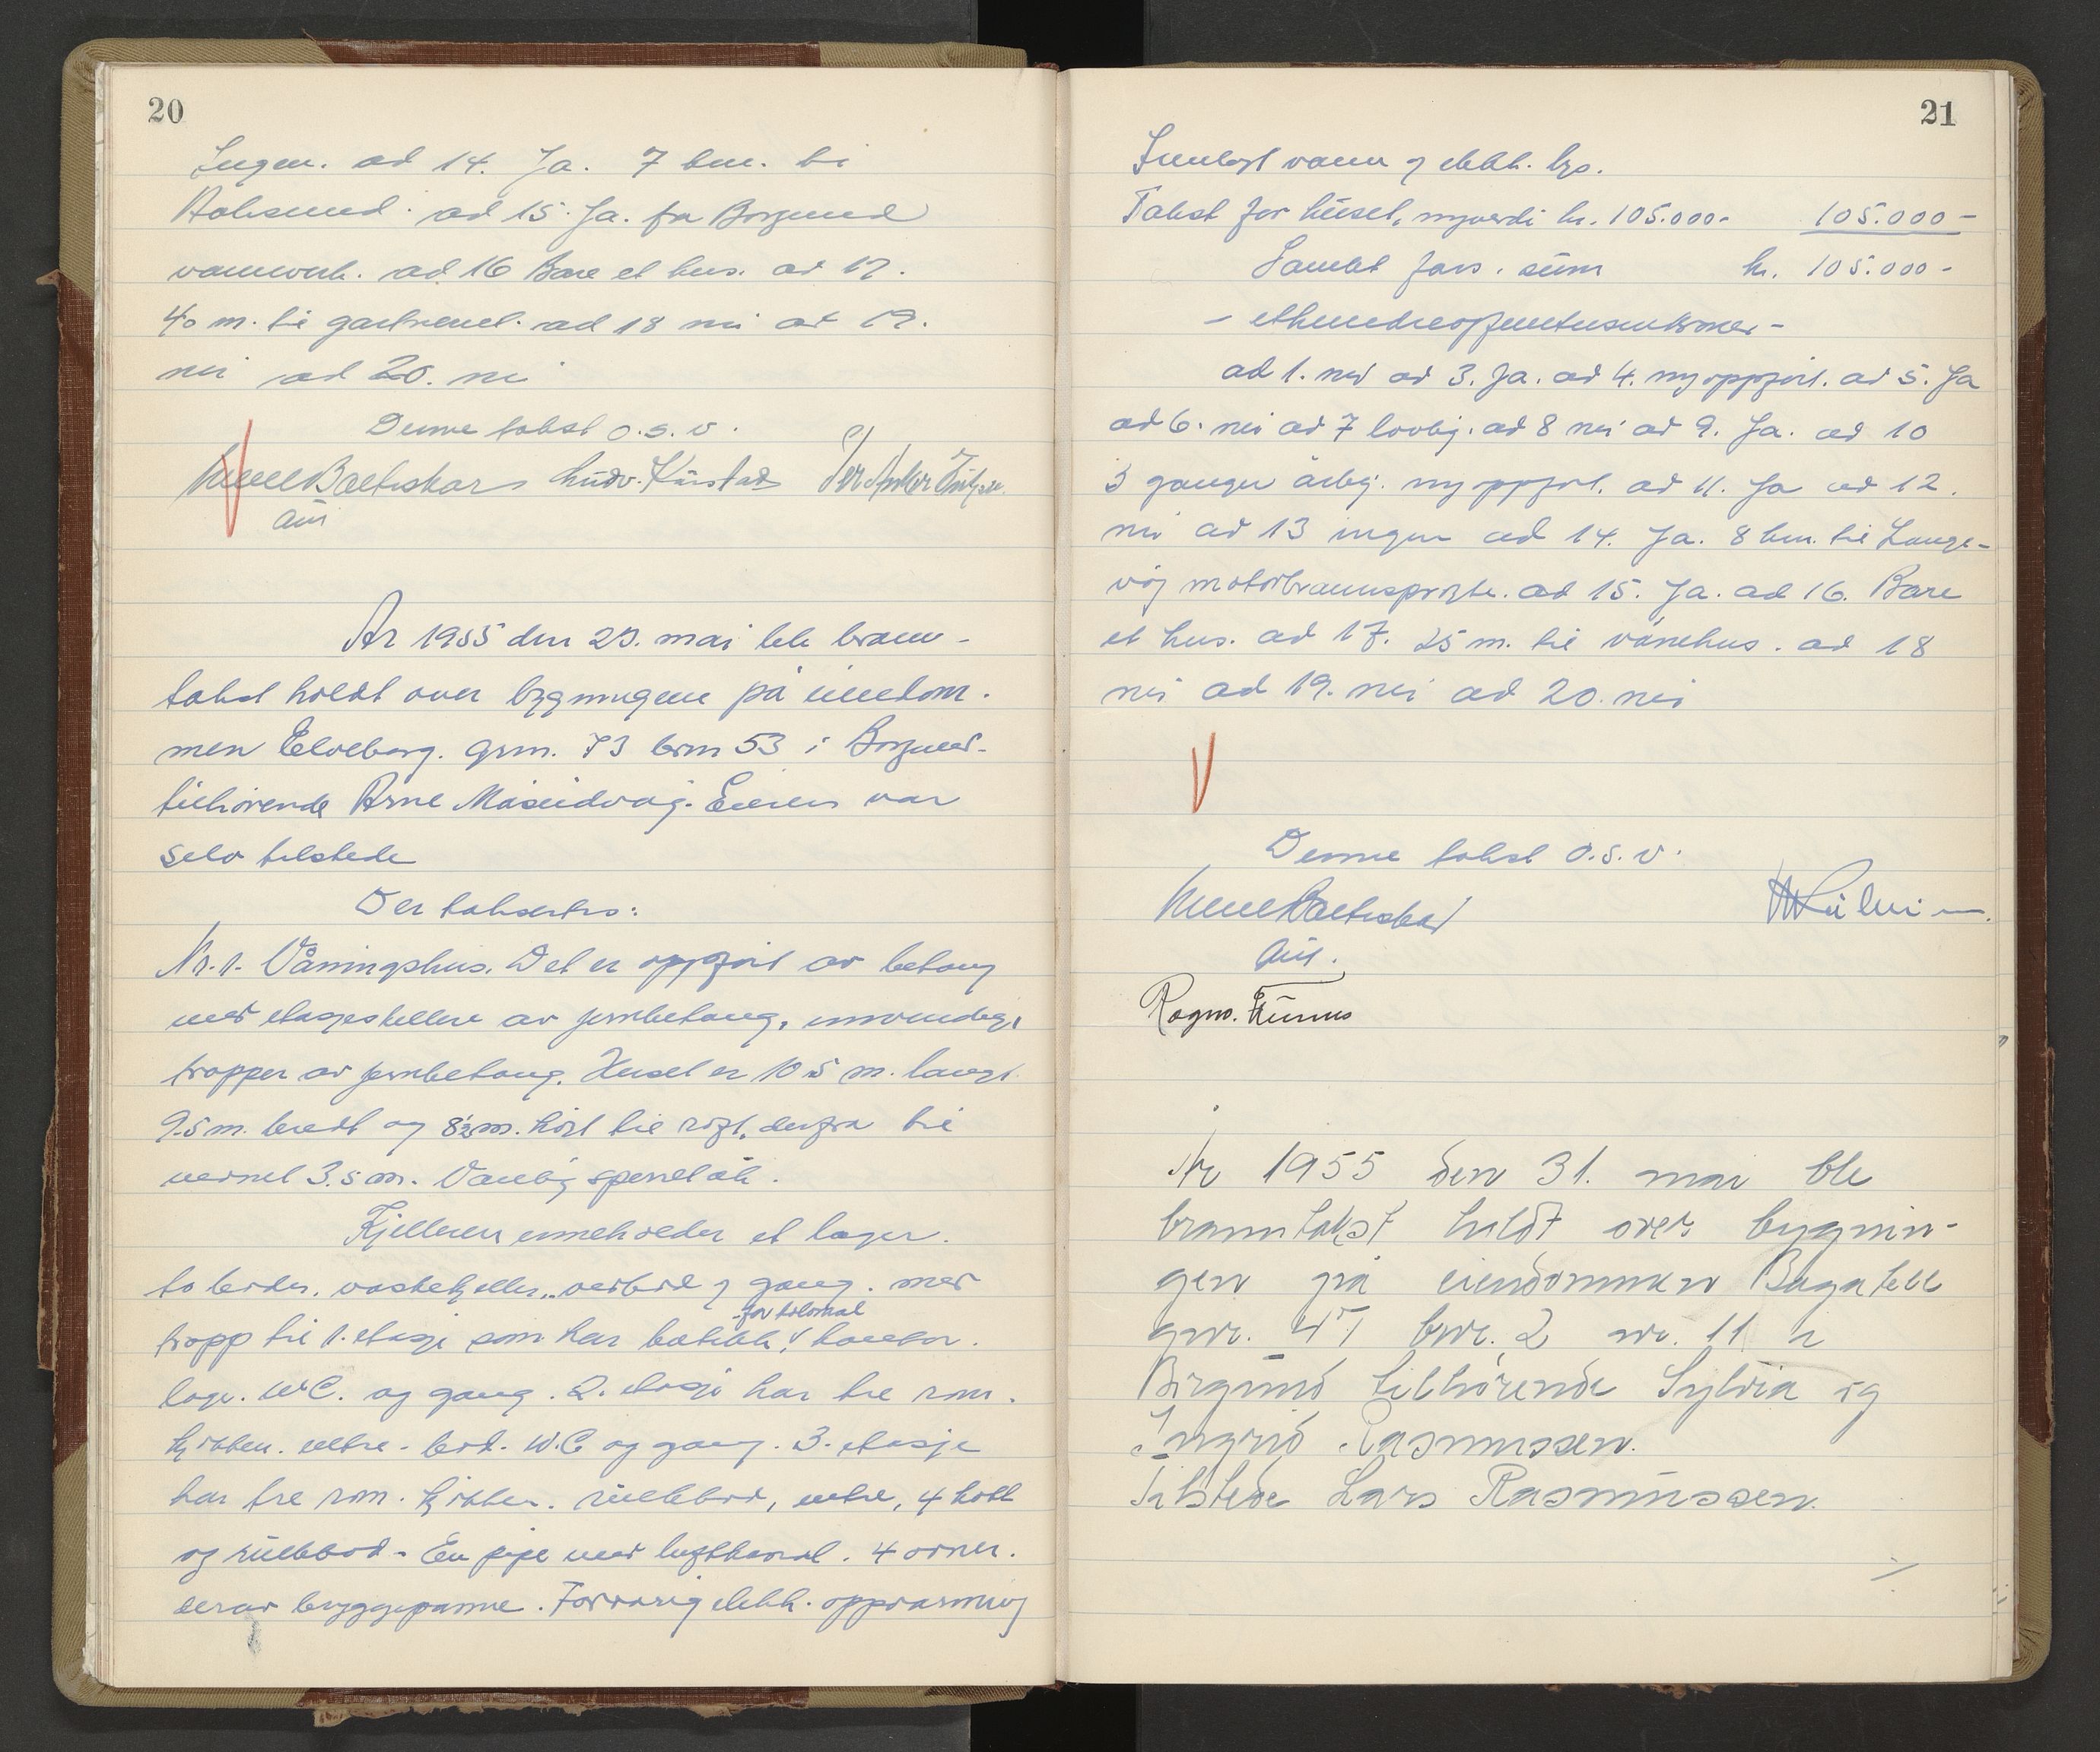 20
Ingen. ad 14. Ja. 7 km. til
Aalesund. ad 15. Ja. fra Borgund
vannverk. ad 16 Bare et hus. ad 17.
40 m. til gartneriet. ad 18 nei ad 19.
nei ad 20. nei
Denne takst o.s.v.
Ludv. Kurstad
År 1955 den 29. mai ble brann-
takst holdt over bygningene på eiendom-
men Elveborg. grn. 73 brn 53 i Borgund
tilhørende Arne Måseidvåg. Eieren var
selv tilstede
Der takseres:
Nr. 1. Våningshus. Det er oppført av betong
med etasjeskillere av jernbetong, innvendige
trapper av jernbetong. Huset er 10.5 m. langt
9.5 m. bredt og 8½ m. høit til røst, derfra til
mønet 3.5 m. Vanlig sperretak.
Kjelleren inneholder et lager.
to boder, vaskekjeller, vedbod og gang. med
for kolonial
trapp til 1. etasje som har butikk, kontor.
lager. W.C. og gang. 2. etasje har tre rom.
kjøkken. entre. bad. W.C og gang. 3. etasje
har tre rom. kjøkken. rullebod, entre, 4 kott
og rullebod - En pipe med luftkanal. 4 ovner.
derav bryggepanne. Forøvrig elekk. oppvarming
21
Innlagt vann og elekk. lys.
Takst for huset, nyverdi kr. 105.000.- 105.000-
Samlet fors. sum kr. 105.000-
- etthundreogfemtusenkroner -
ad 1. nei ad 3. Ja. ad 4. ny oppført. ad 5. Ja
ad 6. nei ad 7 lovlig. ad 8 nei ad 9. Ja. ad 10
3 ganger årlig. ny oppført. ad 11. Ja ad 12.
nei ad 13 ingen ad 14. Ja. 8 km. til Lange-
våg motorbrannsprøite. ad 15. Ja. ad 16. Bare
et hus. ad 17. 25 m. til vånehus. ad 18
nei ad 19. nei ad 20. nei
Denne takst o.s.v.
Ragnv.
År 1955 den 31. mai ble
branntakst holdt over bygnin-
gen på eiendommen Bagatell
gnr. 47 bnr. 2 nr. 11 i
Borgund tilhørende Sylvia og
Ingrid Rasmussen.
Tilstede Lars Rasmussen.